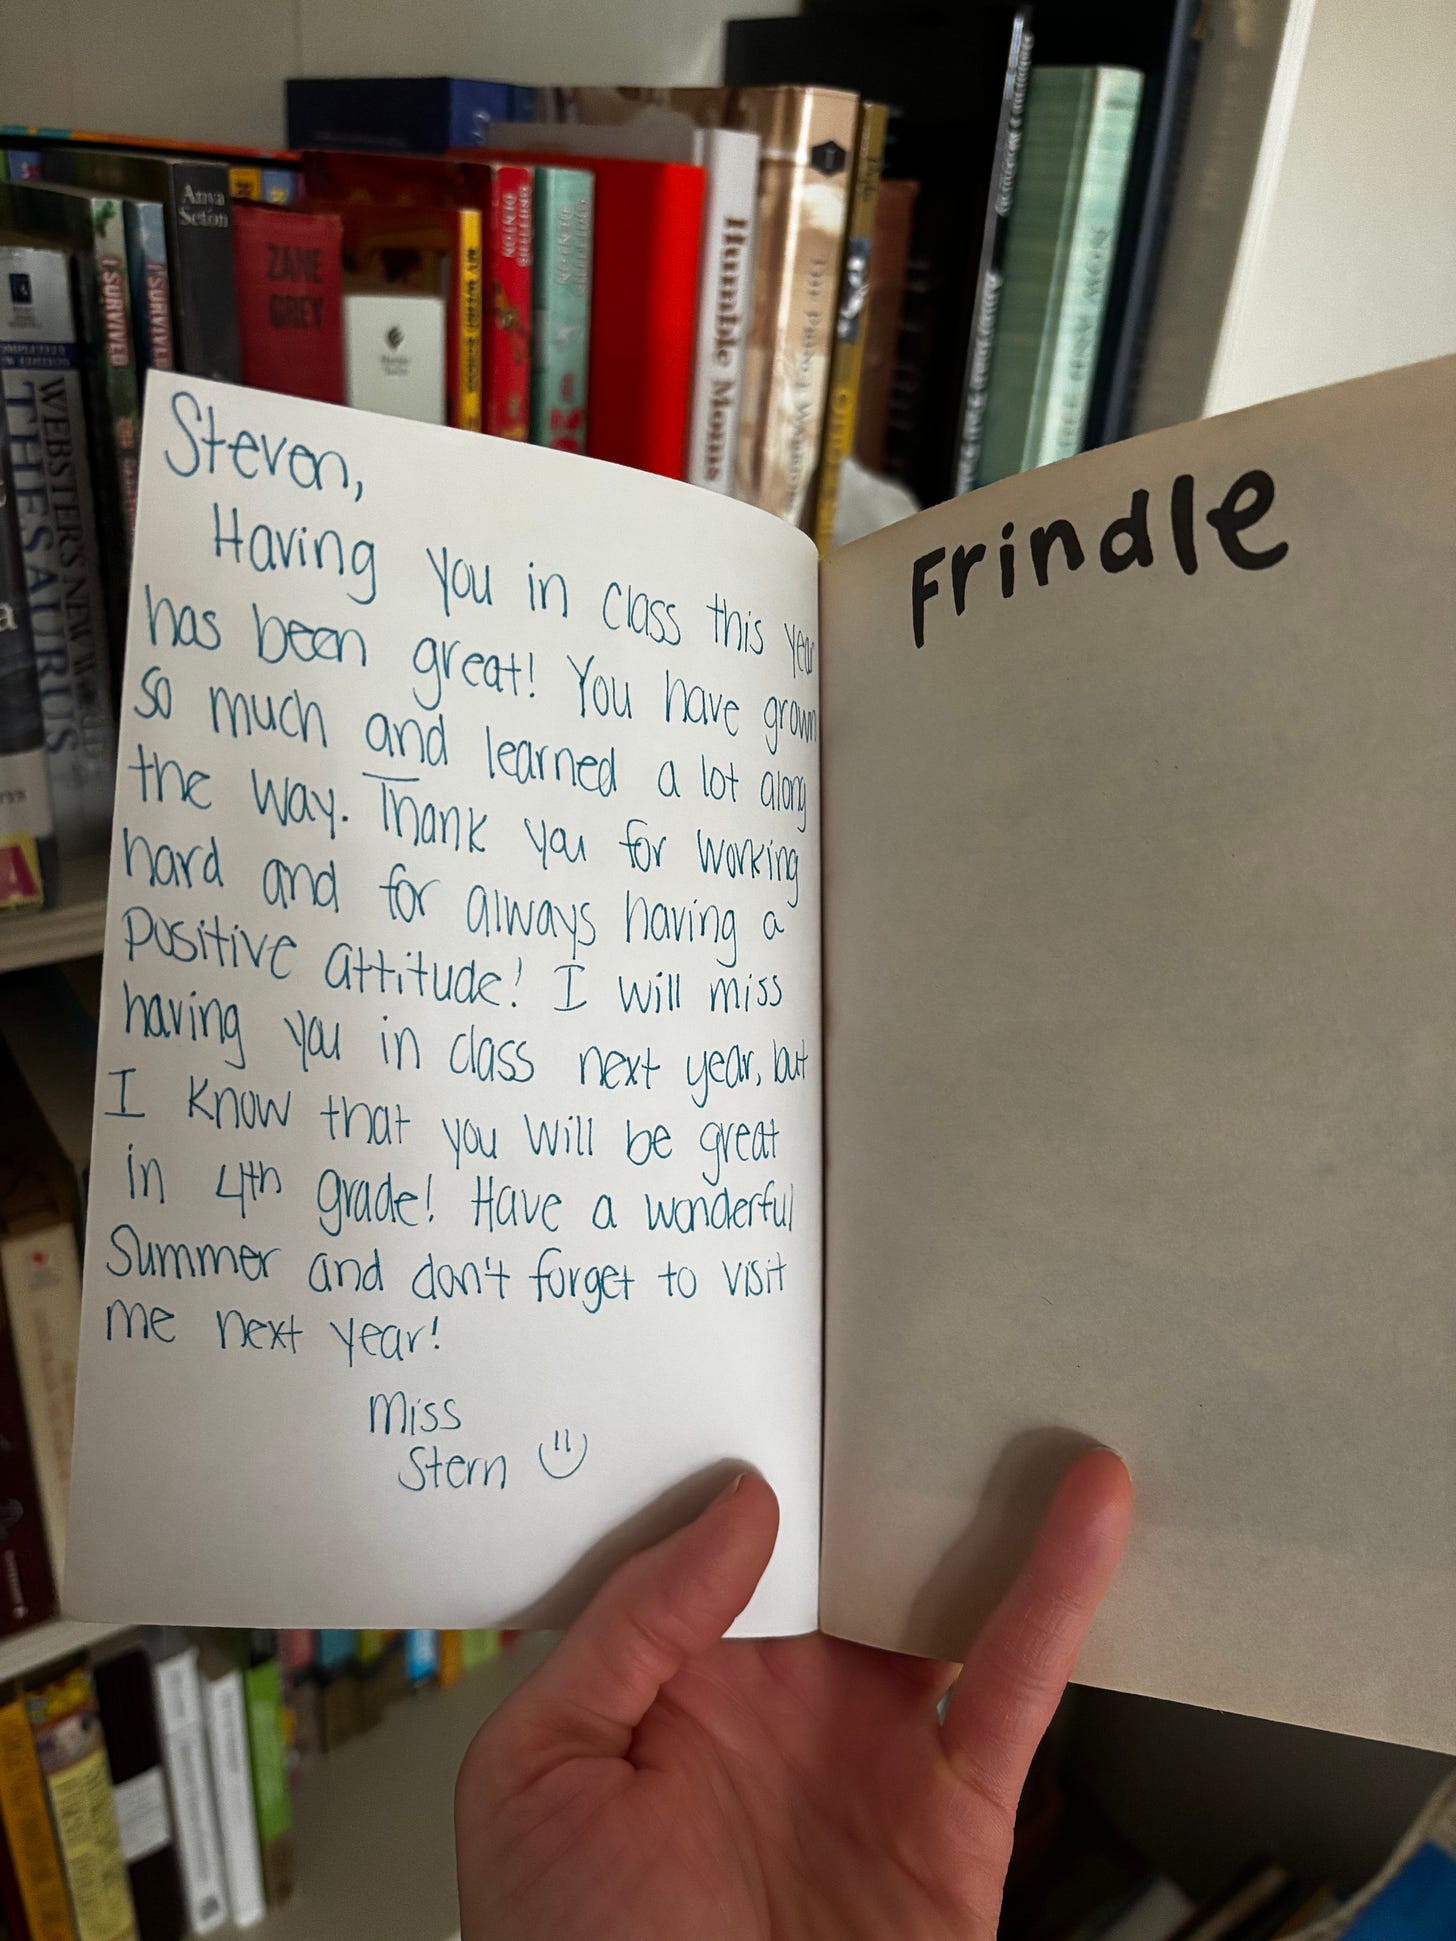 Steven,
Having you in class this year
has been great! You have grown
so much and learned a lot along
the way. Thank you for working
hard and for always having a
positive attitude! I will miss
having you in class next year, but
I know that you will be great
in 4th grade! Have a wonderful
Summer and don't forget to visit
me next year!
Miss
Stern
Frindle
Anya
Seton
ZANE
GREY
I SURVIVED
I SURVIVED
WEBSTER'S NEW WORLD
THESAURUS
MY WEIRD SCHOOL
Humble Moms